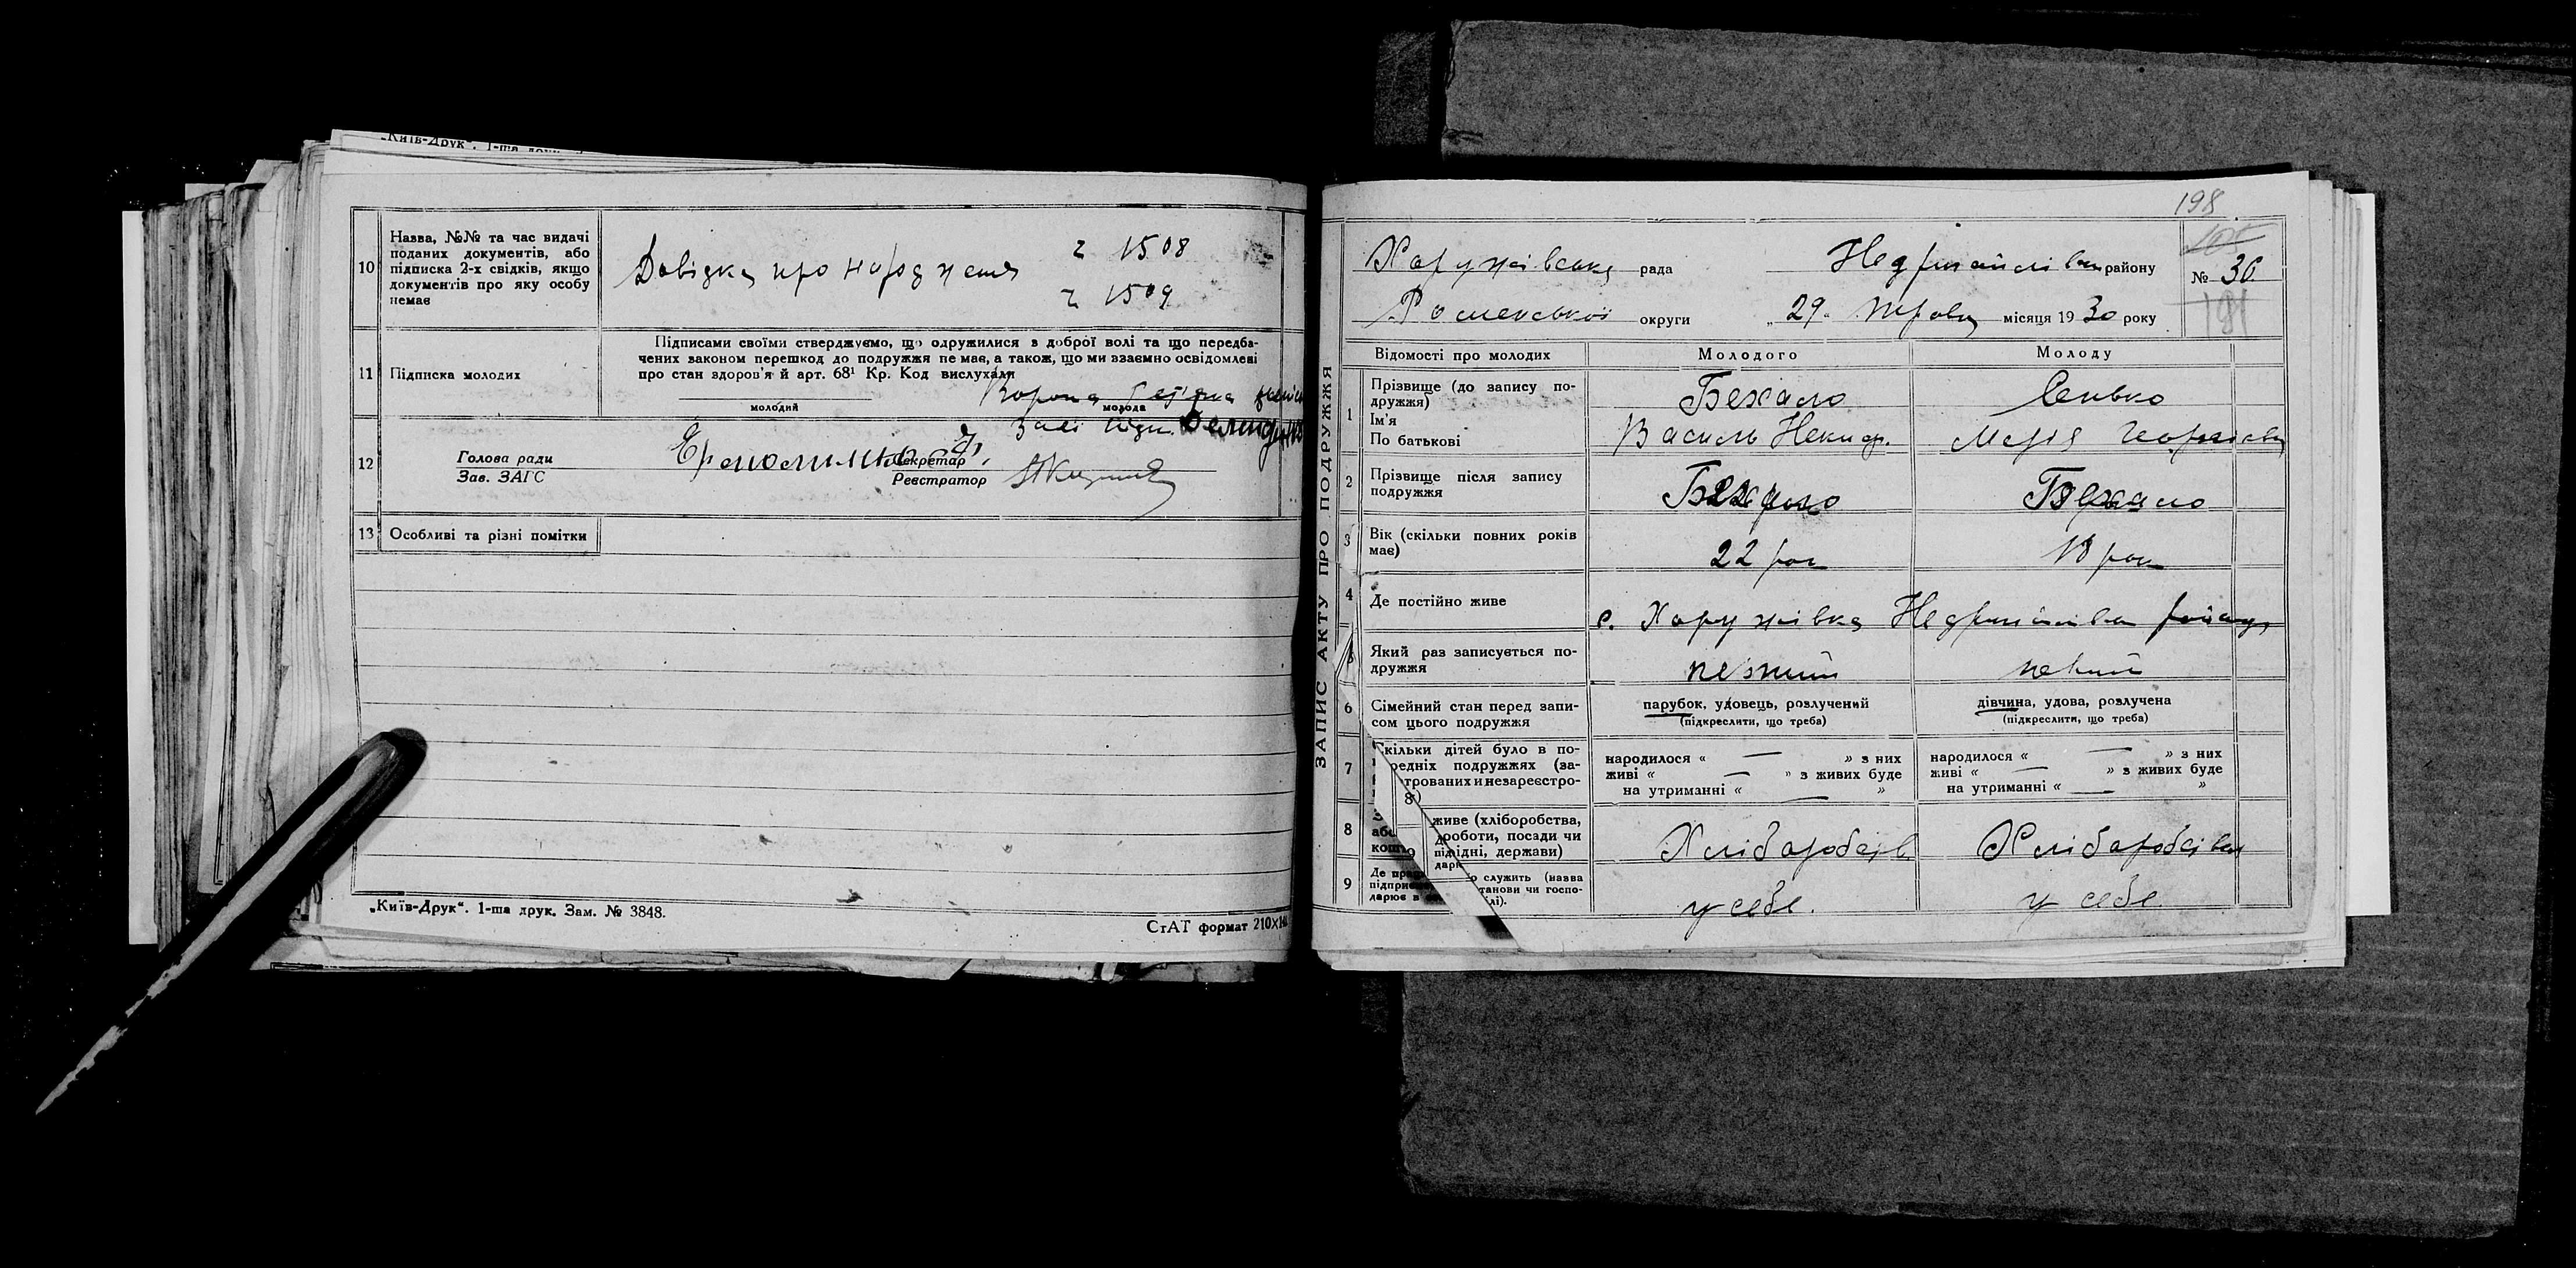 „Київ-Друк“. 1-ша друк. З
10 Назва, №№ та час видачі поданих документів, або підписка 2-х свідків, якщо документів про яку особу немає
Довідка про народження ч 1508
ч 1509
11 Підписка молодих
Підписами своїми стверджуємо, що одружилися з доброї волі та що передба-
чених законом перешкод до подружжя немає, а також, що ми взаємно освідомлені
про стан здоров'я й арт. 68¹ Кр. Код вислухали
молодий
молода
12 Голова ради
Зав. ЗАГС
Секретар
Реєстратор
13 Особливі та різні помітки
„Київ-Друк“. 1-ша друк. Зам. № 3848.
СтАТ формат 210×14
198
Харужівська рада Недригайлівськ району
№ 36
Роменської округи „ 29 „ травня місяця 1930 року
191
ЗАПИС АКТУ ПРО ПОДРУЖЖЯ
Відомості про молодих Молодого Молоду
1 Прізвище (до запису по-
дружжя) Бехало Сенько
Ім'я
По батькові Василь Никиф. Марія Георгіївна
2 Прізвище після запису
подружжя Бехало Бехало
3 Вік (скільки повних років
має) 22 рок 18 рок
4 Де постійно живе с. Харужівка Недригайлівськ району
5 Який раз записується по-
дружжя перший перший
6 Сімейний стан перед запи-
сом цього подружжя
парубок, удовець, розлучений
(підкреслити, що треба)
дівчина, удова, розлучена
(підкреслити, що треба)
7 скільки дітей було в по-
редніх подружжях (за-
трованих и незареєстро-
народилося « — » з них
живі « — » з живих буде
на утриманні « — »
народилося « — » з них
живі « — » з живих буде
на утриманні « — »
8 живе (хліборобства,
роботи, посади чи
підні, держави)
Хліборобсів Хліборобсівом
9 служить (назва
танови чи госпо-
лі).
у себе. у себе